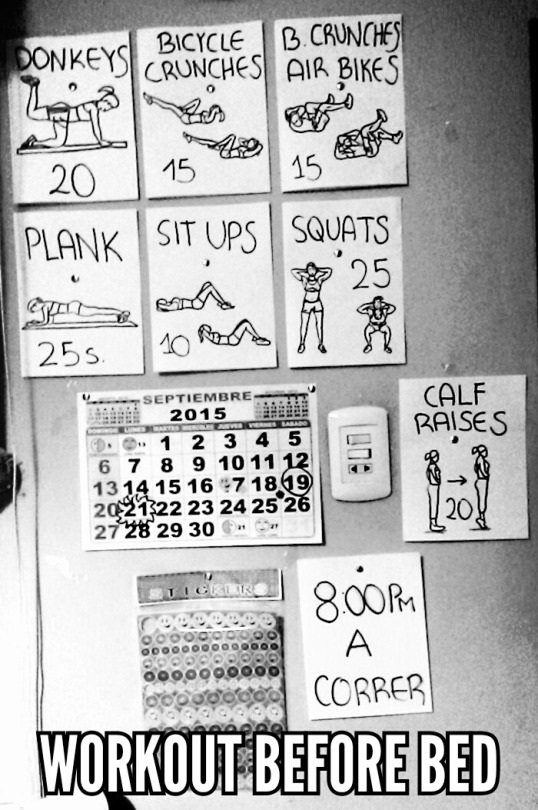 DONKEYS
20
BICYCLE
CRUNCHES
15
B. CRUNCHES
AIR BIKES
15
PLANK
25s.
SIT UPS
10
SQUATS
25
CALF
RAISES
20
SEPTIEMBRE
2015
DOMINGO LUNES MARTES MIERCOLES JUEVES VIERNES SABADO
1 2 3 4 5
6 7 8 9 10 11 12
13 14 15 16 17 18 19
20 21 22 23 24 25 26
27 28 29 30
STICKERS
8:00 PM
A
CORRER
WORKOUT BEFORE BED